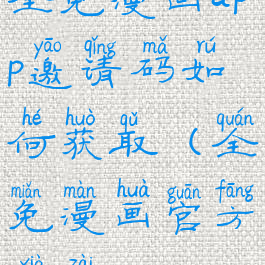 全免漫画ap
yāo qǐng mǎ rú
p邀请码如
hé huò qǔ quán
何获取（全
miǎn màn huà guān fāng
免漫画官方
xià zài